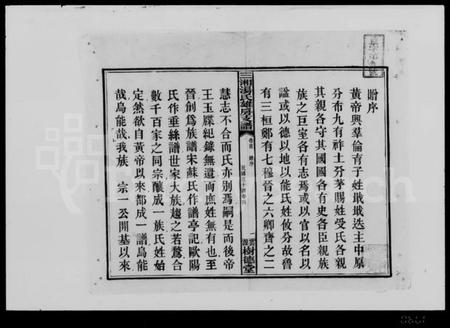 贈序
黃帝興羣倫育子姓戢戢迭主中原
分布九有祚土分茅賜姓受氏各親
其親各守其國國各有史各臣親族
族之巨室各有志焉或以官以名以
諡或以德以地以能氏姓攸分故魯
有三桓鄭有七穆晉之六卿齊之二
三湘湯氏雄房支譜
卷首 贈序
樹德堂
慧志不合而氏亦別焉嗣是而後帝
王玉牒紀錄無遺而庶姓無有也至
晉創為族譜宋蘇氏作譜亭記歐陽
氏作垂絲譜世家大族趨之若鶩合
數千百家之同宗釀成一族氏姓始
定然欲自黃帝以來都成一譜烏能
哉烏能哉我族 宗一公開基以來
my